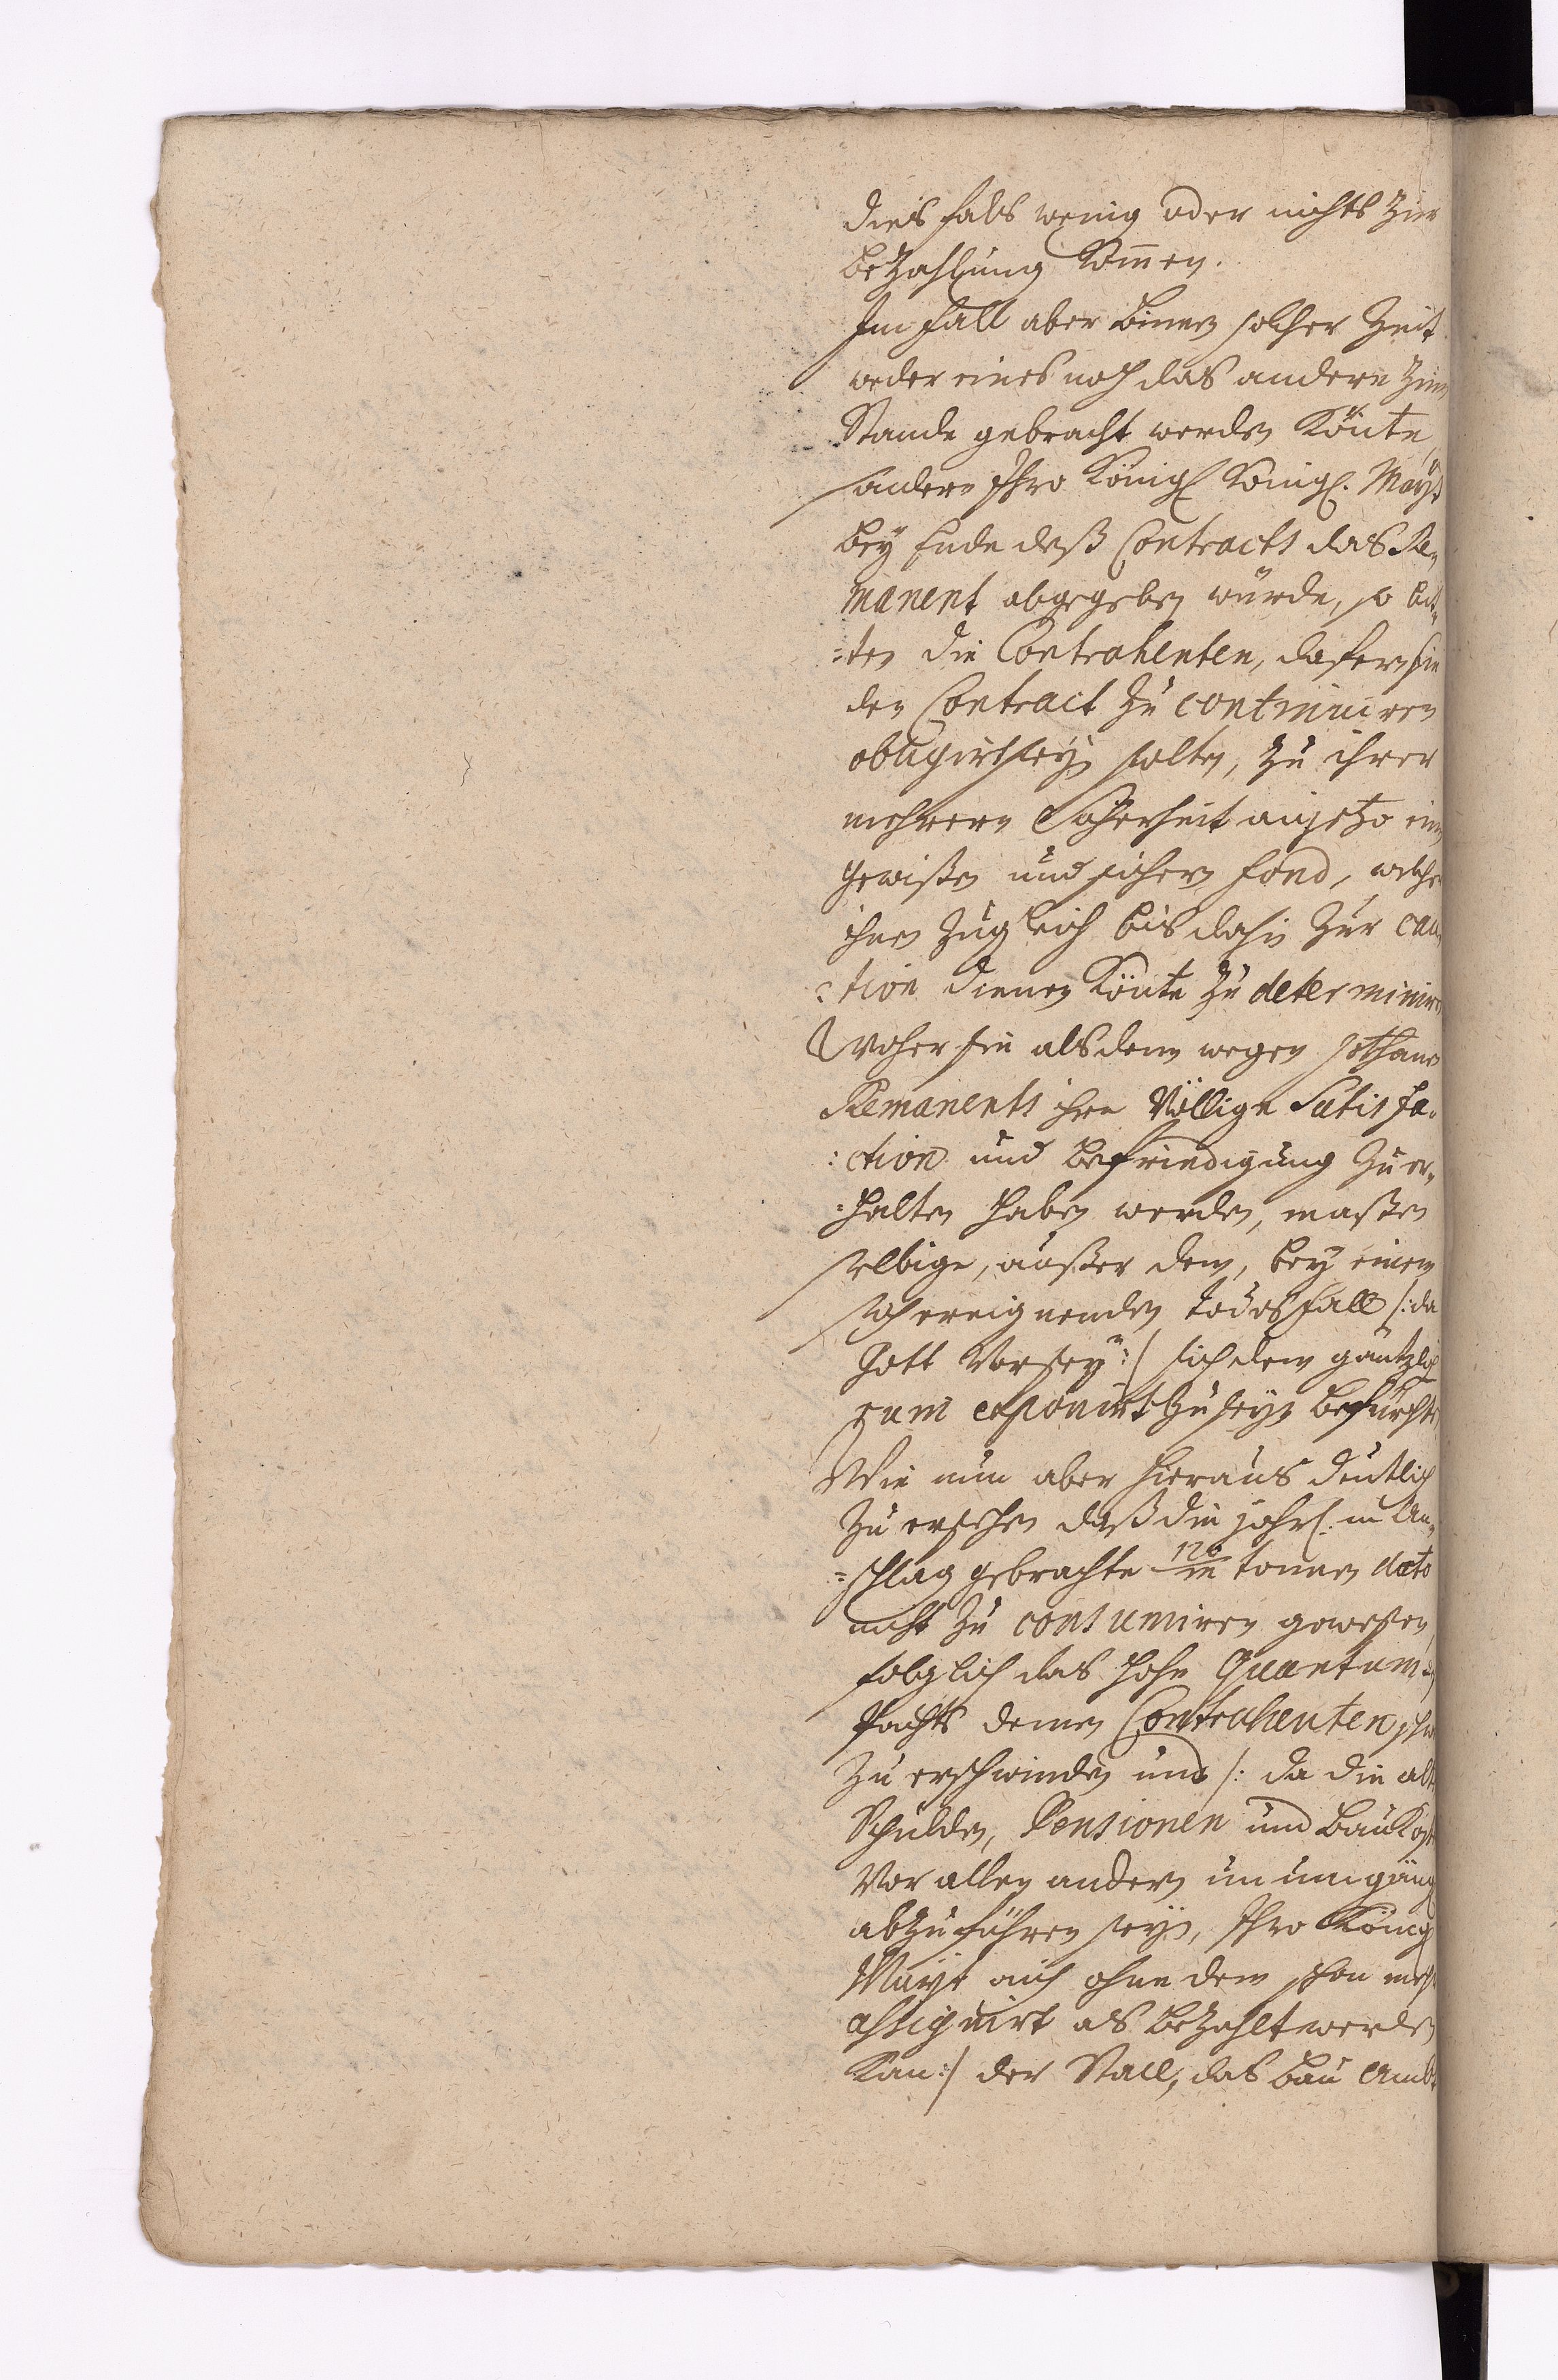 dies falls wenig oder nichts zur
bezahlung kom̄en.
Im fall aber binnen solcher Zeit
weder eines noch das andere zum
Stande gebracht werden könte,
sondern Ihro Königl Königl. Mayt
bey Ende deß Contracts das Re„
manent abgegeben würde, so bit„
=ten die Contrahenten, dafern sie
den Contract zu continuiren
obligirt seyn solten, zu ihrer
mehrern Sicherheit anjetzo ein
gewißen und sichern fond, welcher
ihnen zugleich bis dahin zur cau„
=tion dienen könte zu determiniren
Woher sie alsdenn wegen sothanen
Remanents ihre Völlige Satisfa„
:ction und befriedigung zu er„
=halten haben werden, maßen
selbige, außer dem, bey einem
sich ereignenden todesfall /: da
Gott Vorsey :/ sich dem gäntzlich
ruin exponirt zu seyn befürchten
Wie nun aber hieraus deutlich
zu ersehen daß die jährl: in An„
=schlag gebrachte 120/m tonnen dato
nicht zu consumiren gewesen,
folglich das hohe Quantum
Pachts denen Contrahenten schwer
zu erschwinden und /: da die alten
Schulden, Pensionen und Baukosten
Vor allen andern unumgängl
abzuführen seyn, Ihro Königl
Mayt auch ohne dem schon mehr
assignirt als bezahlt werden
kan :/ der Stall, das Bau Ambt